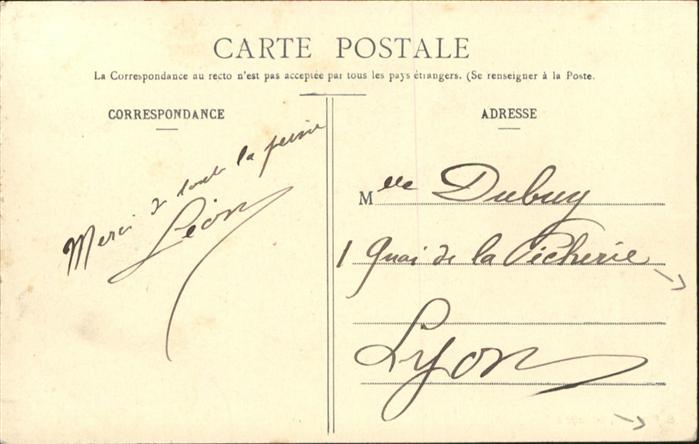 CARTE POSTALE
La Correspondance au recto n'est pas acceptée par tous les pays étrangers. (Se renseigner à la Poste.
CORRESPONDANCE
Merci de toute la peine
Léon
ADRESSE
Mlle Dubuy
1 Quai de la Pêcherie
Lyon